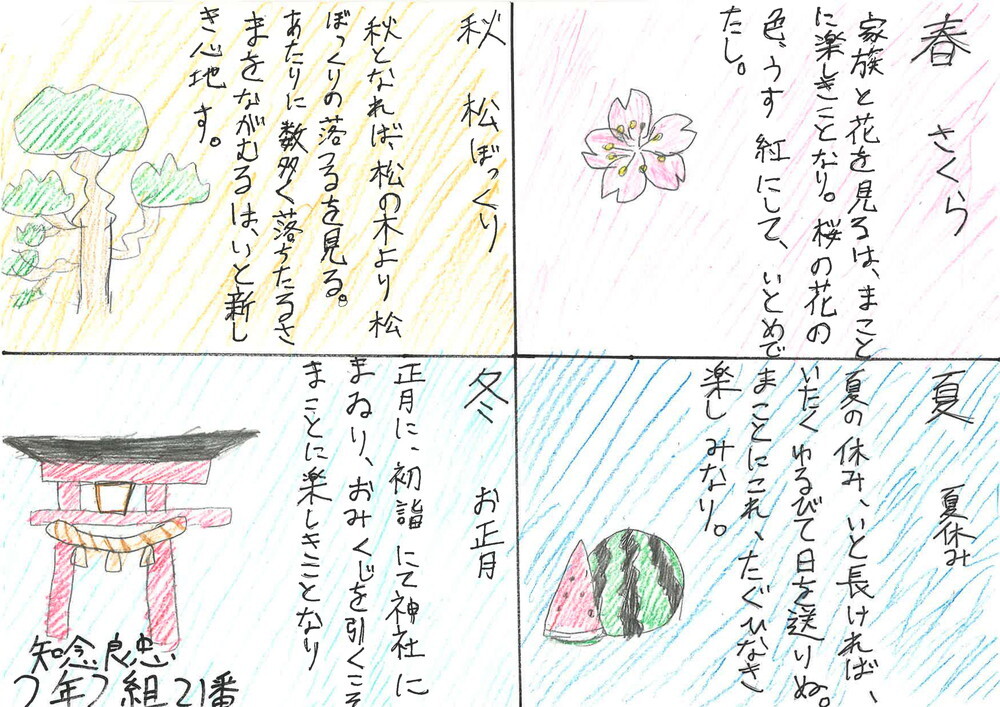 春 さくら
家族と花を見るは、まこと
に楽しきことなり。桜の花の
色、うす紅にして、いとめで
たし。
夏 夏休み
夏の休み、いと長ければ、
いたくゆるびて日を送りぬ。
まことにこれ、たぐひなき
楽しみなり。
秋 松ぼっくり
秋となれば、松の木より松
ぼっくりの落つるを見る。
あたりに数多く落ちたるさ
まをながむるは、いと新し
き心地す。
冬 お正月
正月に、初詣にて神社に
まゐり、おみくじを引くこそ
まことに楽しきことなり
知念良忠
2年2組21番